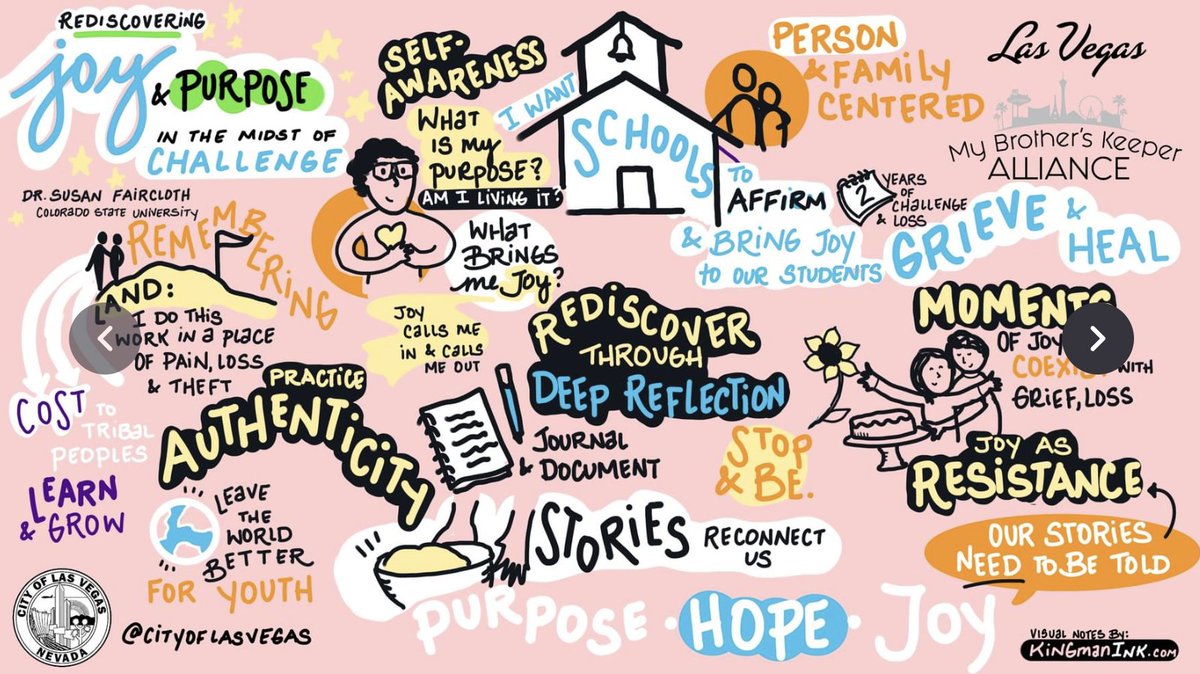 REDISCOVERING
joy
& PURPOSE
IN THE MIDST OF
CHALLENGE
DR. SUSAN FAIRCLOTH
COLORADO STATE UNIVERSITY
REMEMBERING
LAND:
I DO THIS
WORK IN A PLACE
OF PAIN, LOSS
& THEFT
COST TO
TRIBAL
PEOPLES
LEARN
& GROW
SELF-
AWARENESS
WHAT
IS my
PURPOSE?
AM I LIVING IT?
WHAT
BRINGS
me JOY?
JOY
CALLS ME
IN & CALLS
ME OUT
I WANT
SCHOOLS
TO
AFFIRM
& BRING JOY
TO OUR STUDENTS
PERSON
& FAMILY
CENTERED
Las Vegas
My Brother's Keeper
ALLIANCE
2
YEARS
OF
CHALLENGE
& LOSS
GRIEVE &
HEAL
PRACTICE
AUTHENTICITY
LEAVE
THE
WORLD
BETTER
FOR YOUTH
REDISCOVER
THROUGH
DEEP REFLECTION
JOURNAL
& DOCUMENT
STOP
& BE.
MOMENTS
OF JOY
WITH
GRIEF, LOSS
JOY AS
RESISTANCE
OUR STORIES
NEED TO BE TOLD
STORIES RECONNECT
US
PURPOSE · HOPE · Joy
CITY OF LAS VEGAS
NEVADA
@CITYOFLASVEGAS
VISUAL NOTES BY:
KINGMANINK.com